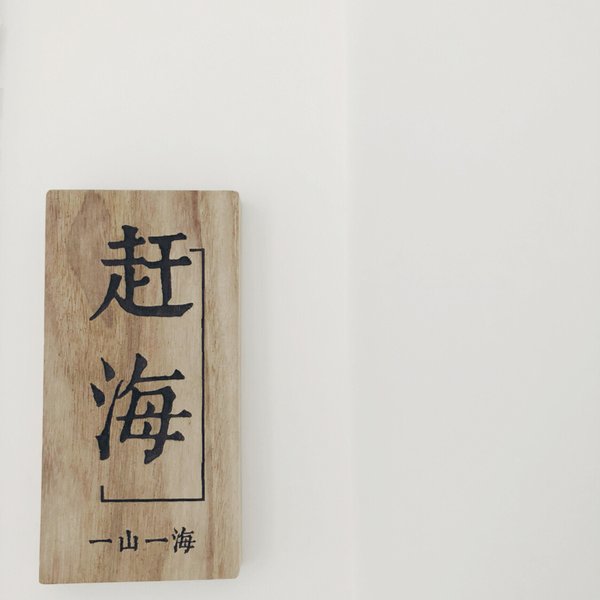 赶海
一山一海